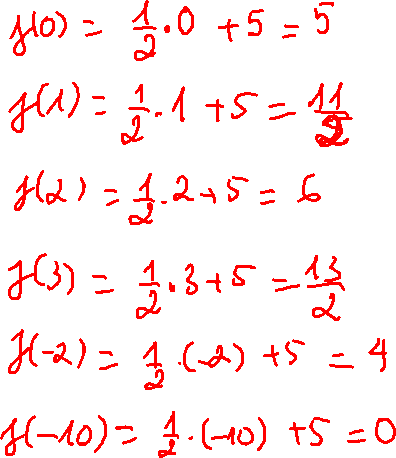 f(0) = 1/2 · 0 + 5 = 5
f(1) = 1/2 · 1 + 5 = 11/2
f(2) = 1/2 · 2 + 5 = 6
f(3) = 1/2 · 3 + 5 = 13/2
f(-2) = 1/2 · (-2) + 5 = 4
f(-10) = 1/2 · (-10) + 5 = 0